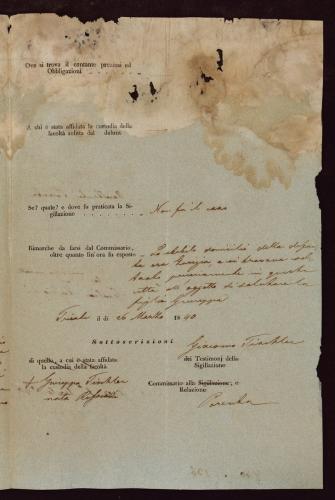 Ove si trova il contante preziosi ed
Obbligazioni
A chi è stata affidata la custodia della
facoltà relitta dal defunto
Se? quale? e dove fu praticata la Sigillazione
Non fu il caso
Rimarche da farsi dal Commissario,
oltre quanto fin'ora fu esposto
La stabile domicilio della
era Venezia e si trovava
in questa
città all'oggetto di salutare la
figlia Giuseppa
il dì 26 Marzo 1840
Sottoscrizioni
di quello, a cui è stata affidata
la custodia della facoltà
+ Giuseppa Tischler
nata
Giacomo Tischler
dei Testimonj della
Sigillazione
Commissario alla Sigillazione, e
Relazione